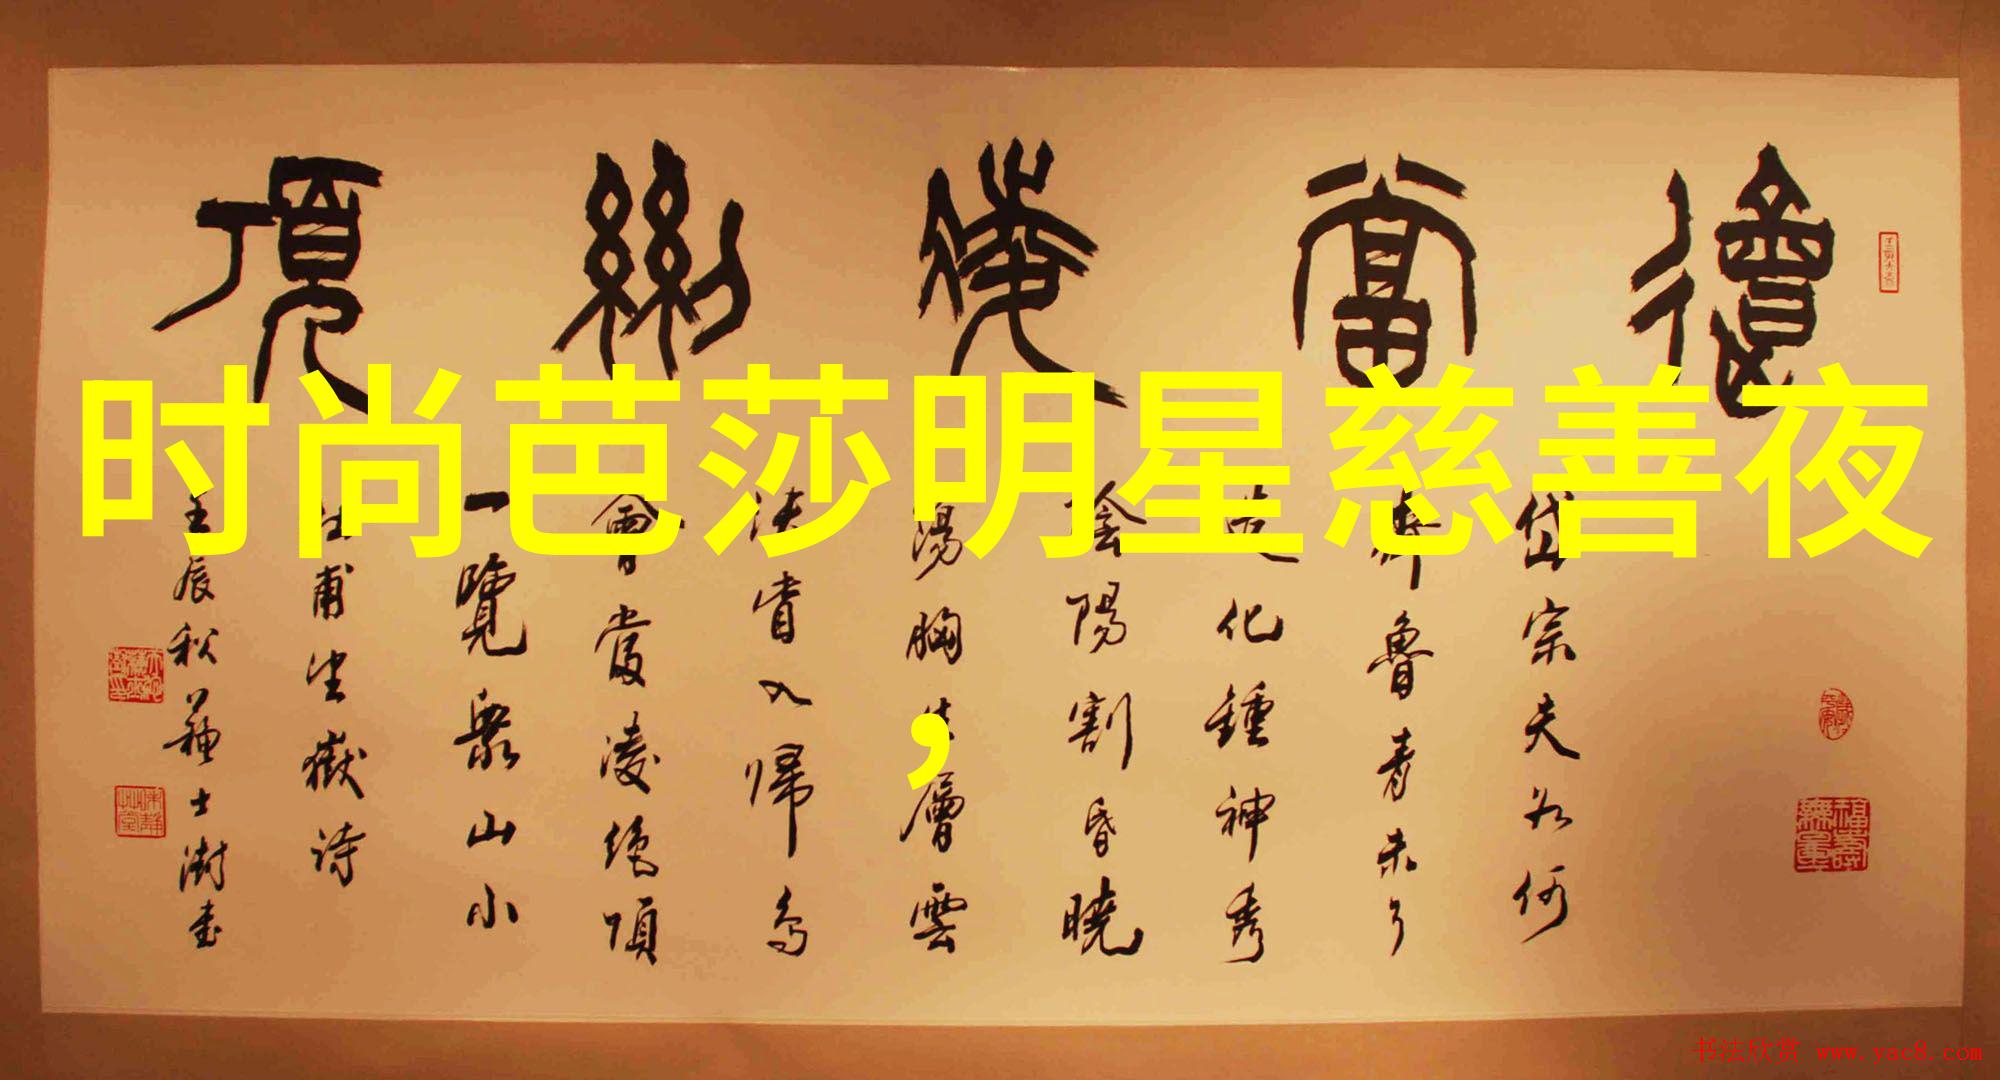 會當凌絕頂
时尚芭莎明星慈善夜
，
岱宗夫如何
齊魯青未了
造化鍾神秀
陰陽割昏曉
蕩胸生層雲
決眥入歸鳥
會當凌絕頂
一覽衆山小
杜甫望嶽詩
壬辰秋蘇士澍書
福壽無量
书法欣赏 www.yac8.com